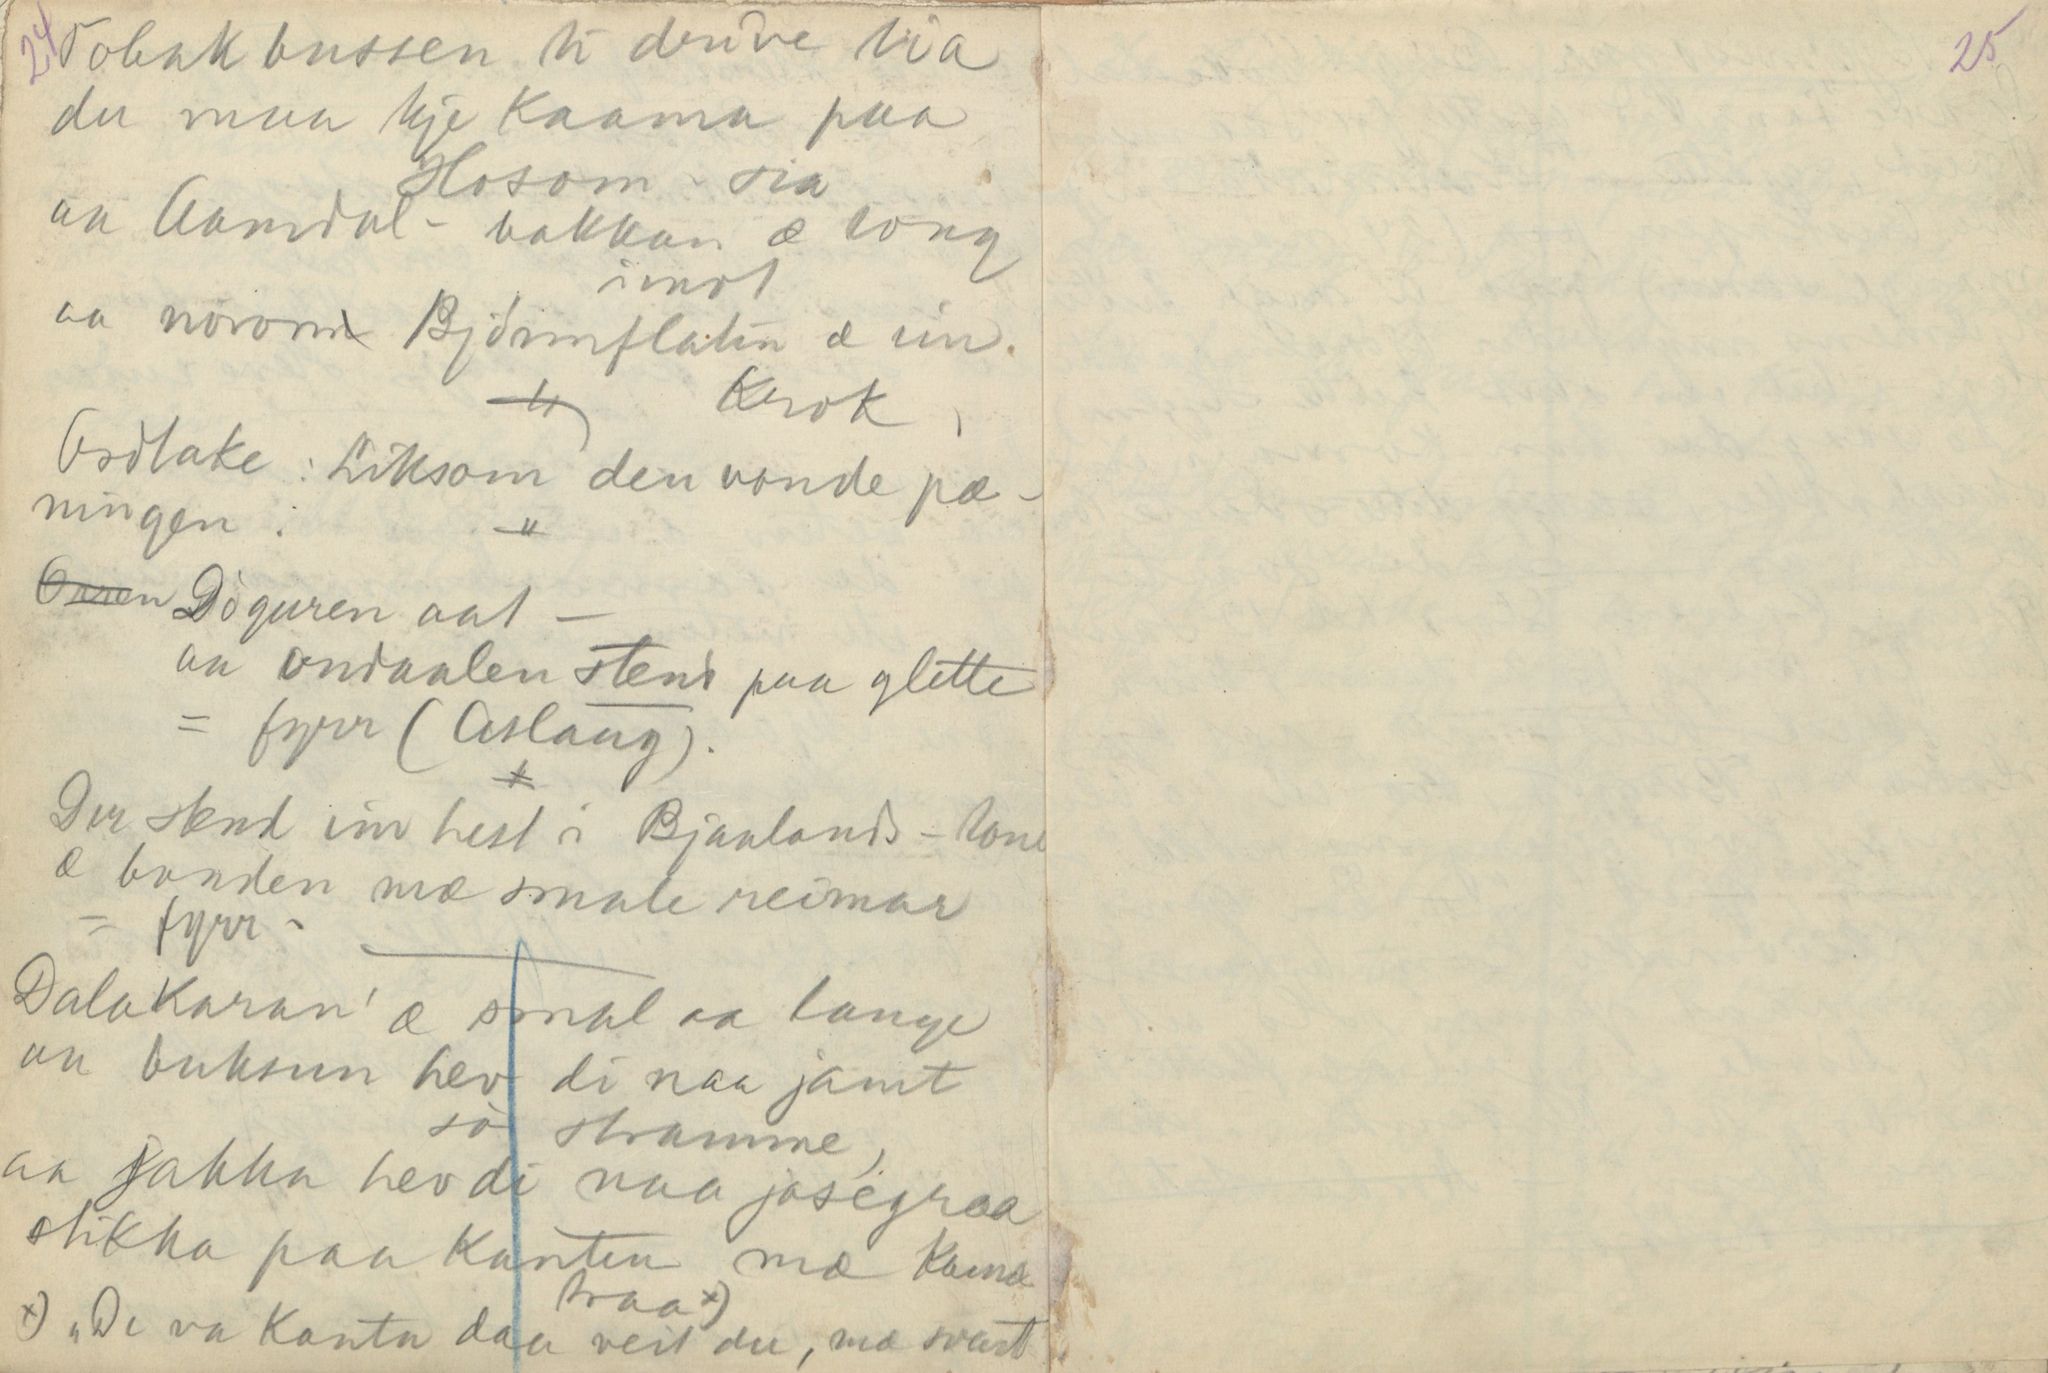 24
Tobakbussen ti denne tia
du maa kje Kaama paa
Hosom-sia
aa Aamdal-bakkan æ long
imot
aa norom Björnnflatin æ ein
Krok,
—"—
Ordtake: Liksom den vonde pæ-
ningen:
—"—
Döguren aat —
aa ondaalen stend paa glette
= fyrr (Aslaug).
Der stend ein hest i Bjaalands-tone
æ bonden mæ smale reimar
= fyrr -
Dalakaran' æ smal aa lange
aa buksun hev di naa jamt
so stramme,
aa jakka hev di naa josegraa
stikka paa Kanten mæ
traa x)
x) "De va Kanta daa veit du, mæ svart
25